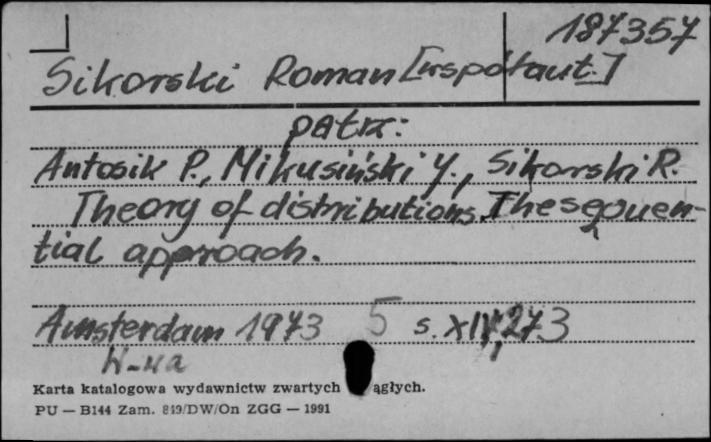 187357
Sikorski Roman [współaut.]
patrz:
Antosik P., Mikusiński J., Sikorski R.
Theory of distributions. The sequen-
tial approach.
Amsterdam 1973 5 s. XIV, 273
Karta katalogowa wydawnictw zwartych ągłych.
PU — B144 Zam. 849/DW/On ZGG — 1991